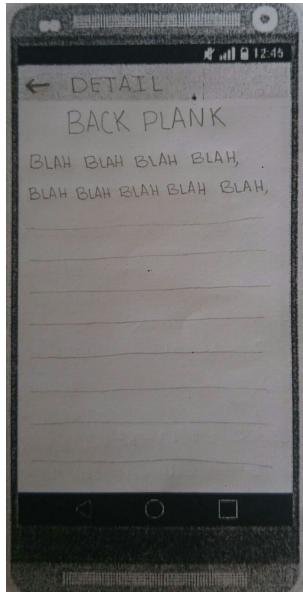 12:45
← DETAIL
BACK PLANK
BLAH BLAH BLAH BLAH,
BLAH BLAH BLAH BLAH BLAH,